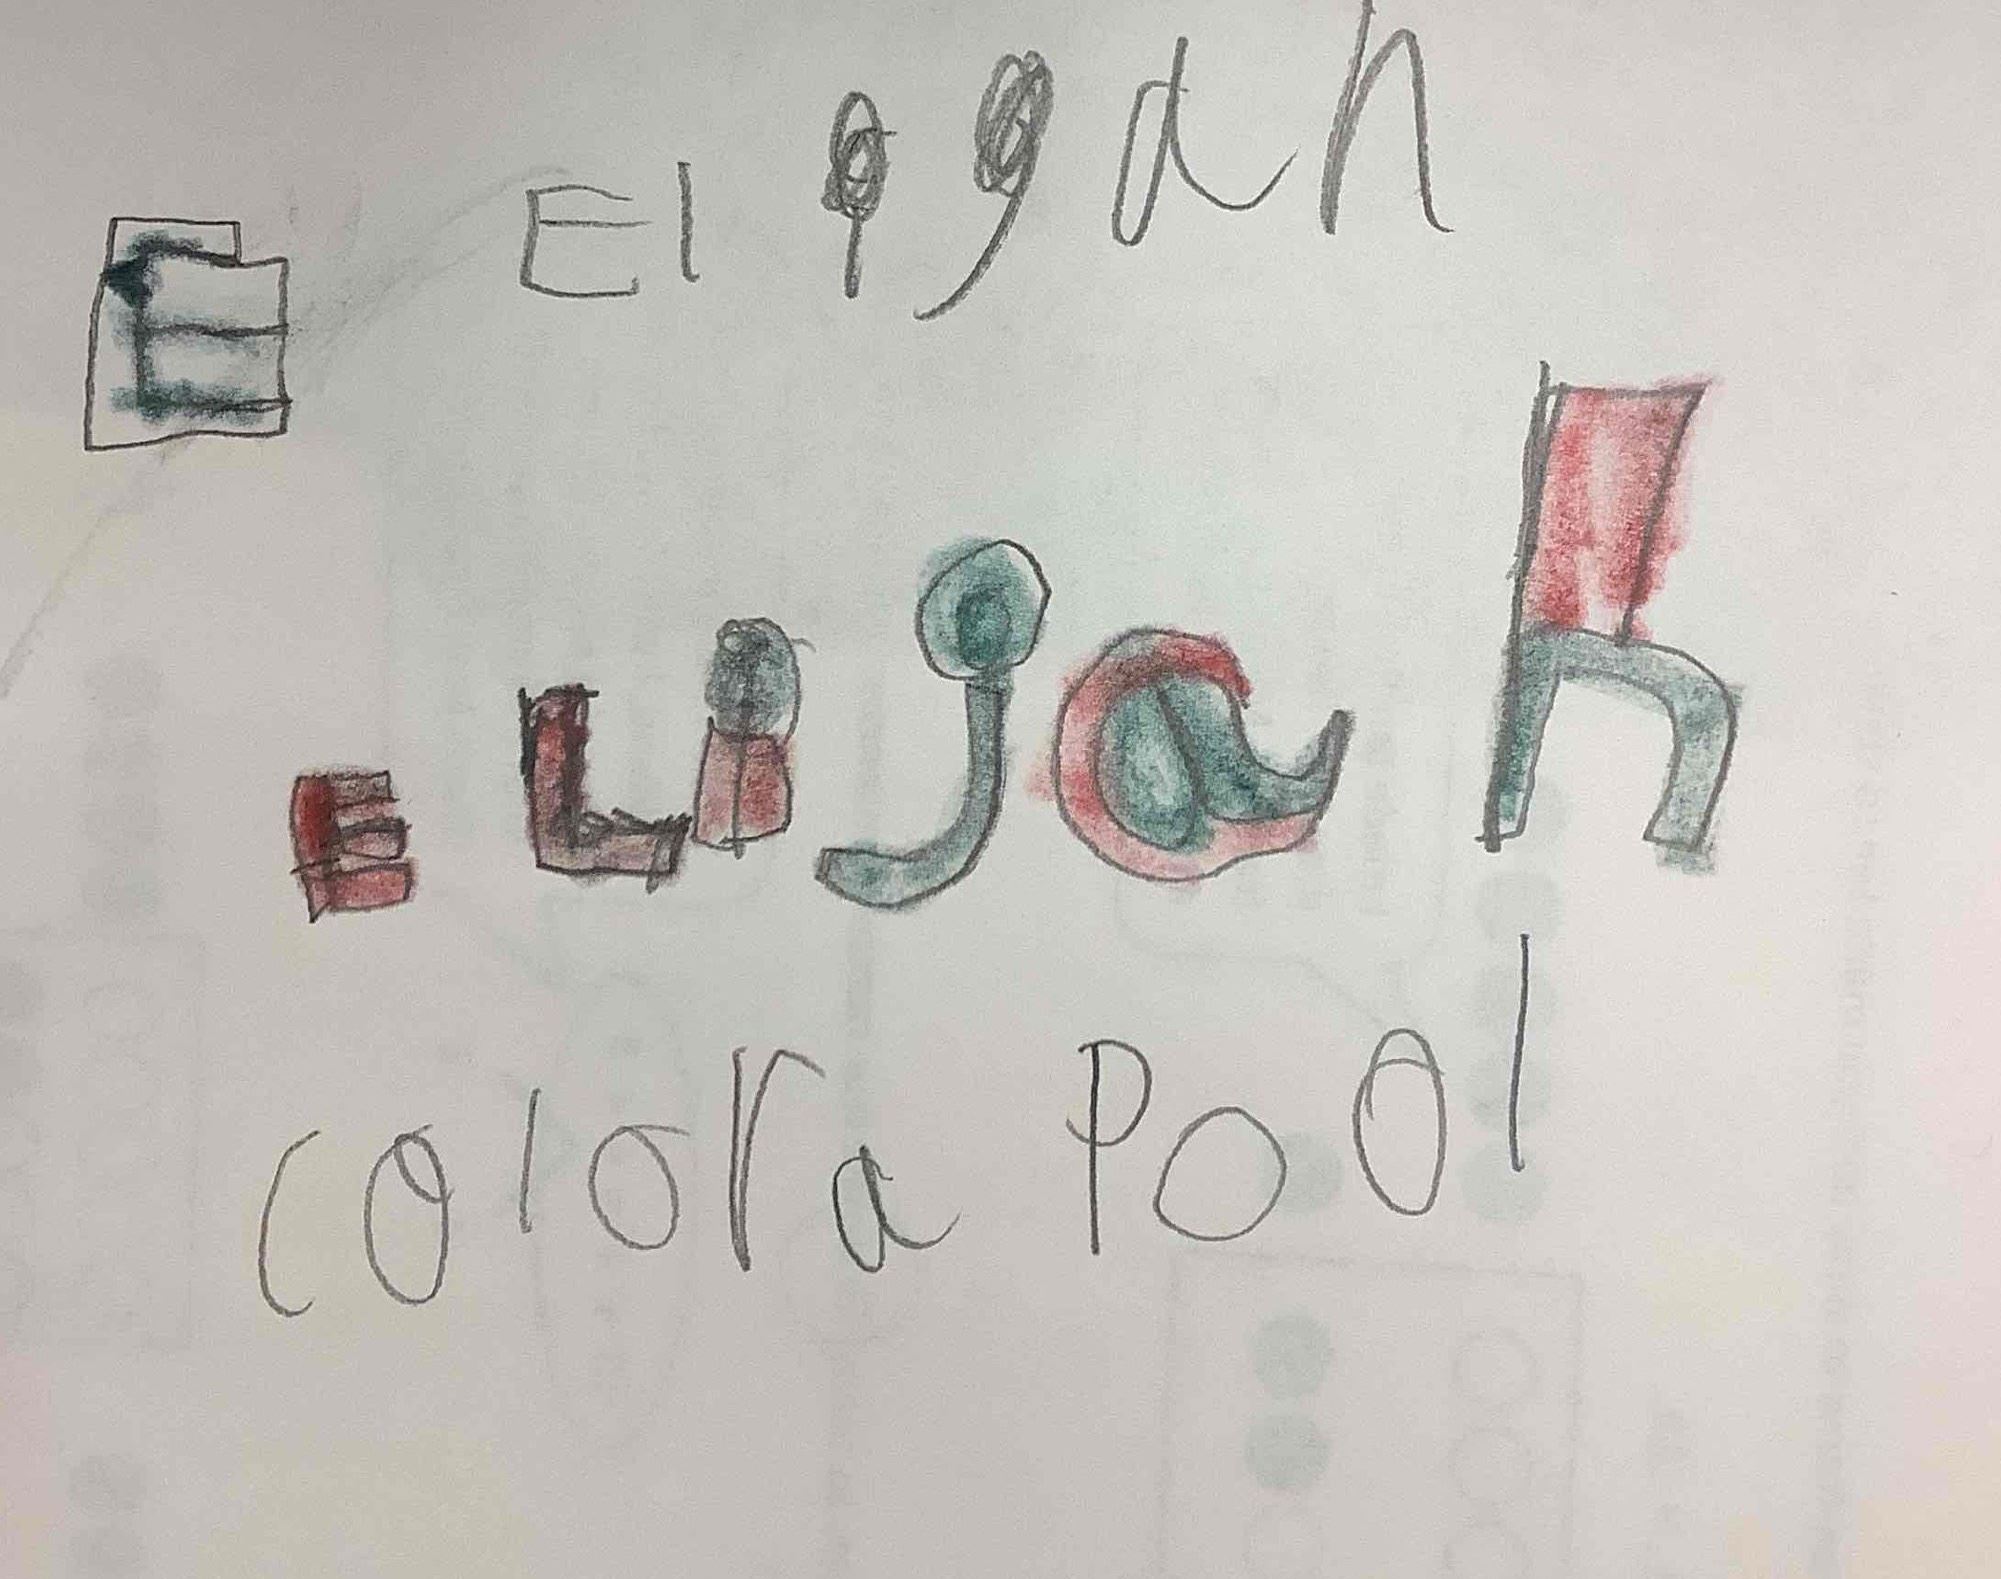 E
Elijah
ELijah
colora Pool